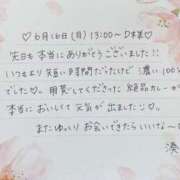 ♡ 6月16日(月) 13:00〜 D様 ♡
先日も本当にありがとうございました!!
いつもより短い時間だったけど 濃い100
でした♡。用意してくださった 絶品カレーが
本当においしくて元気が出ました♡。
またゆっくり お会いできたらいいな〜
湊